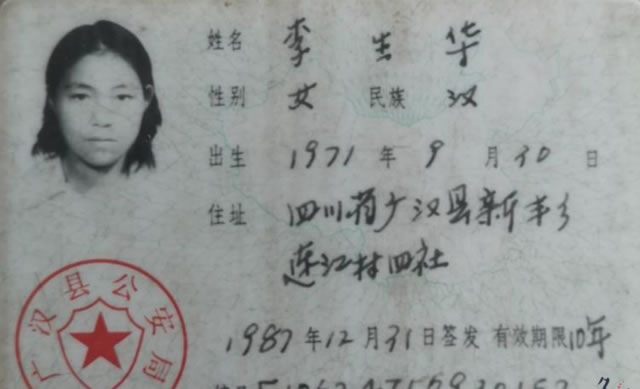 姓名 李生华
性别 女 民族 汉
出生 1971年9月30日
住址 四川省广汉县新丰乡
连江村四社
广汉县公安局
1987年12月31日签发 有效期限10年